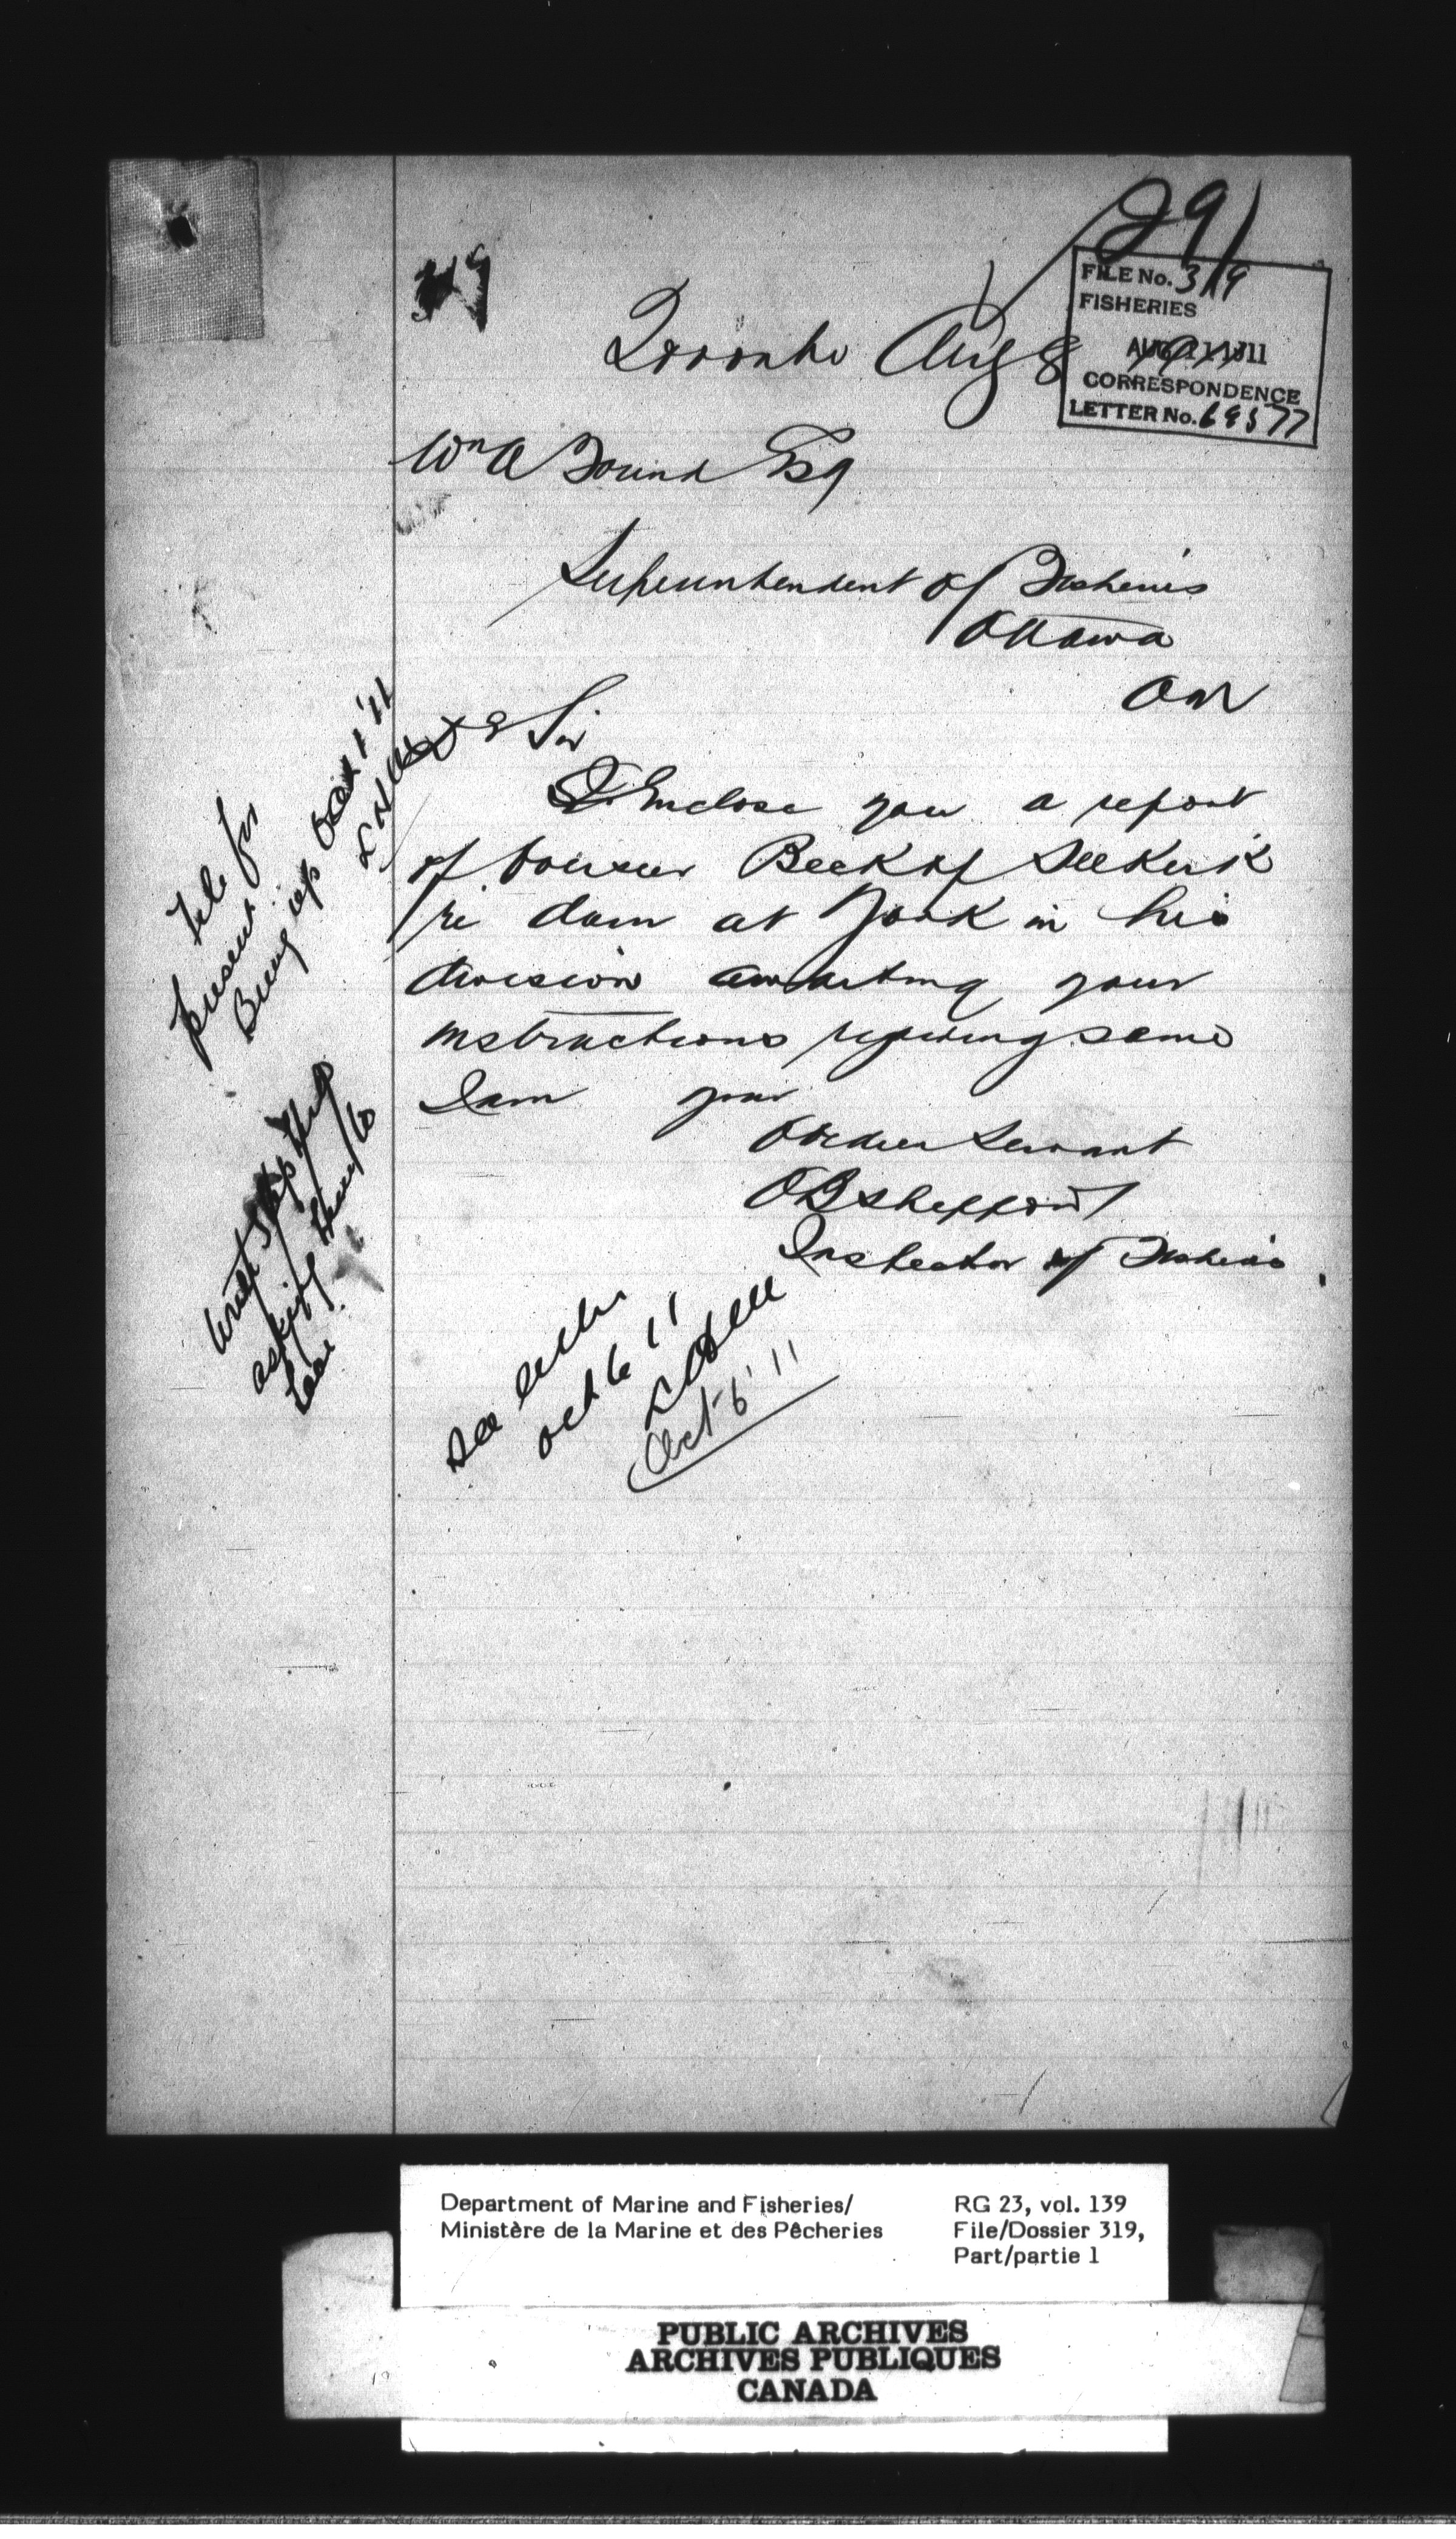 291
FILE No. 319
FISHERIES
AUG 11 1911
CORRESPONDENCE
LETTER No. 69577
Toronto Aug 8
Wm A Found Esq
Superintendent of Fisheries
Ottawa
Ont
Sir
I Enclose you a report
of Overseer Beck of Selkirk
re dam at York in his
division awaiting your
instructions regarding same
I am your
Obedien Servant
OB Sheppard
Inspector of Fisheries
File for
present
Bring up Oct 1 '11
asking
See letter
Oct 6 11
Oct 6 '11
Department of Marine and Fisheries/
Ministère de la Marine et des Pêcheries
RG 23, vol. 139
File/Dossier 319,
Part/partie 1
PUBLIC ARCHIVES
ARCHIVES PUBLIQUES
CANADA